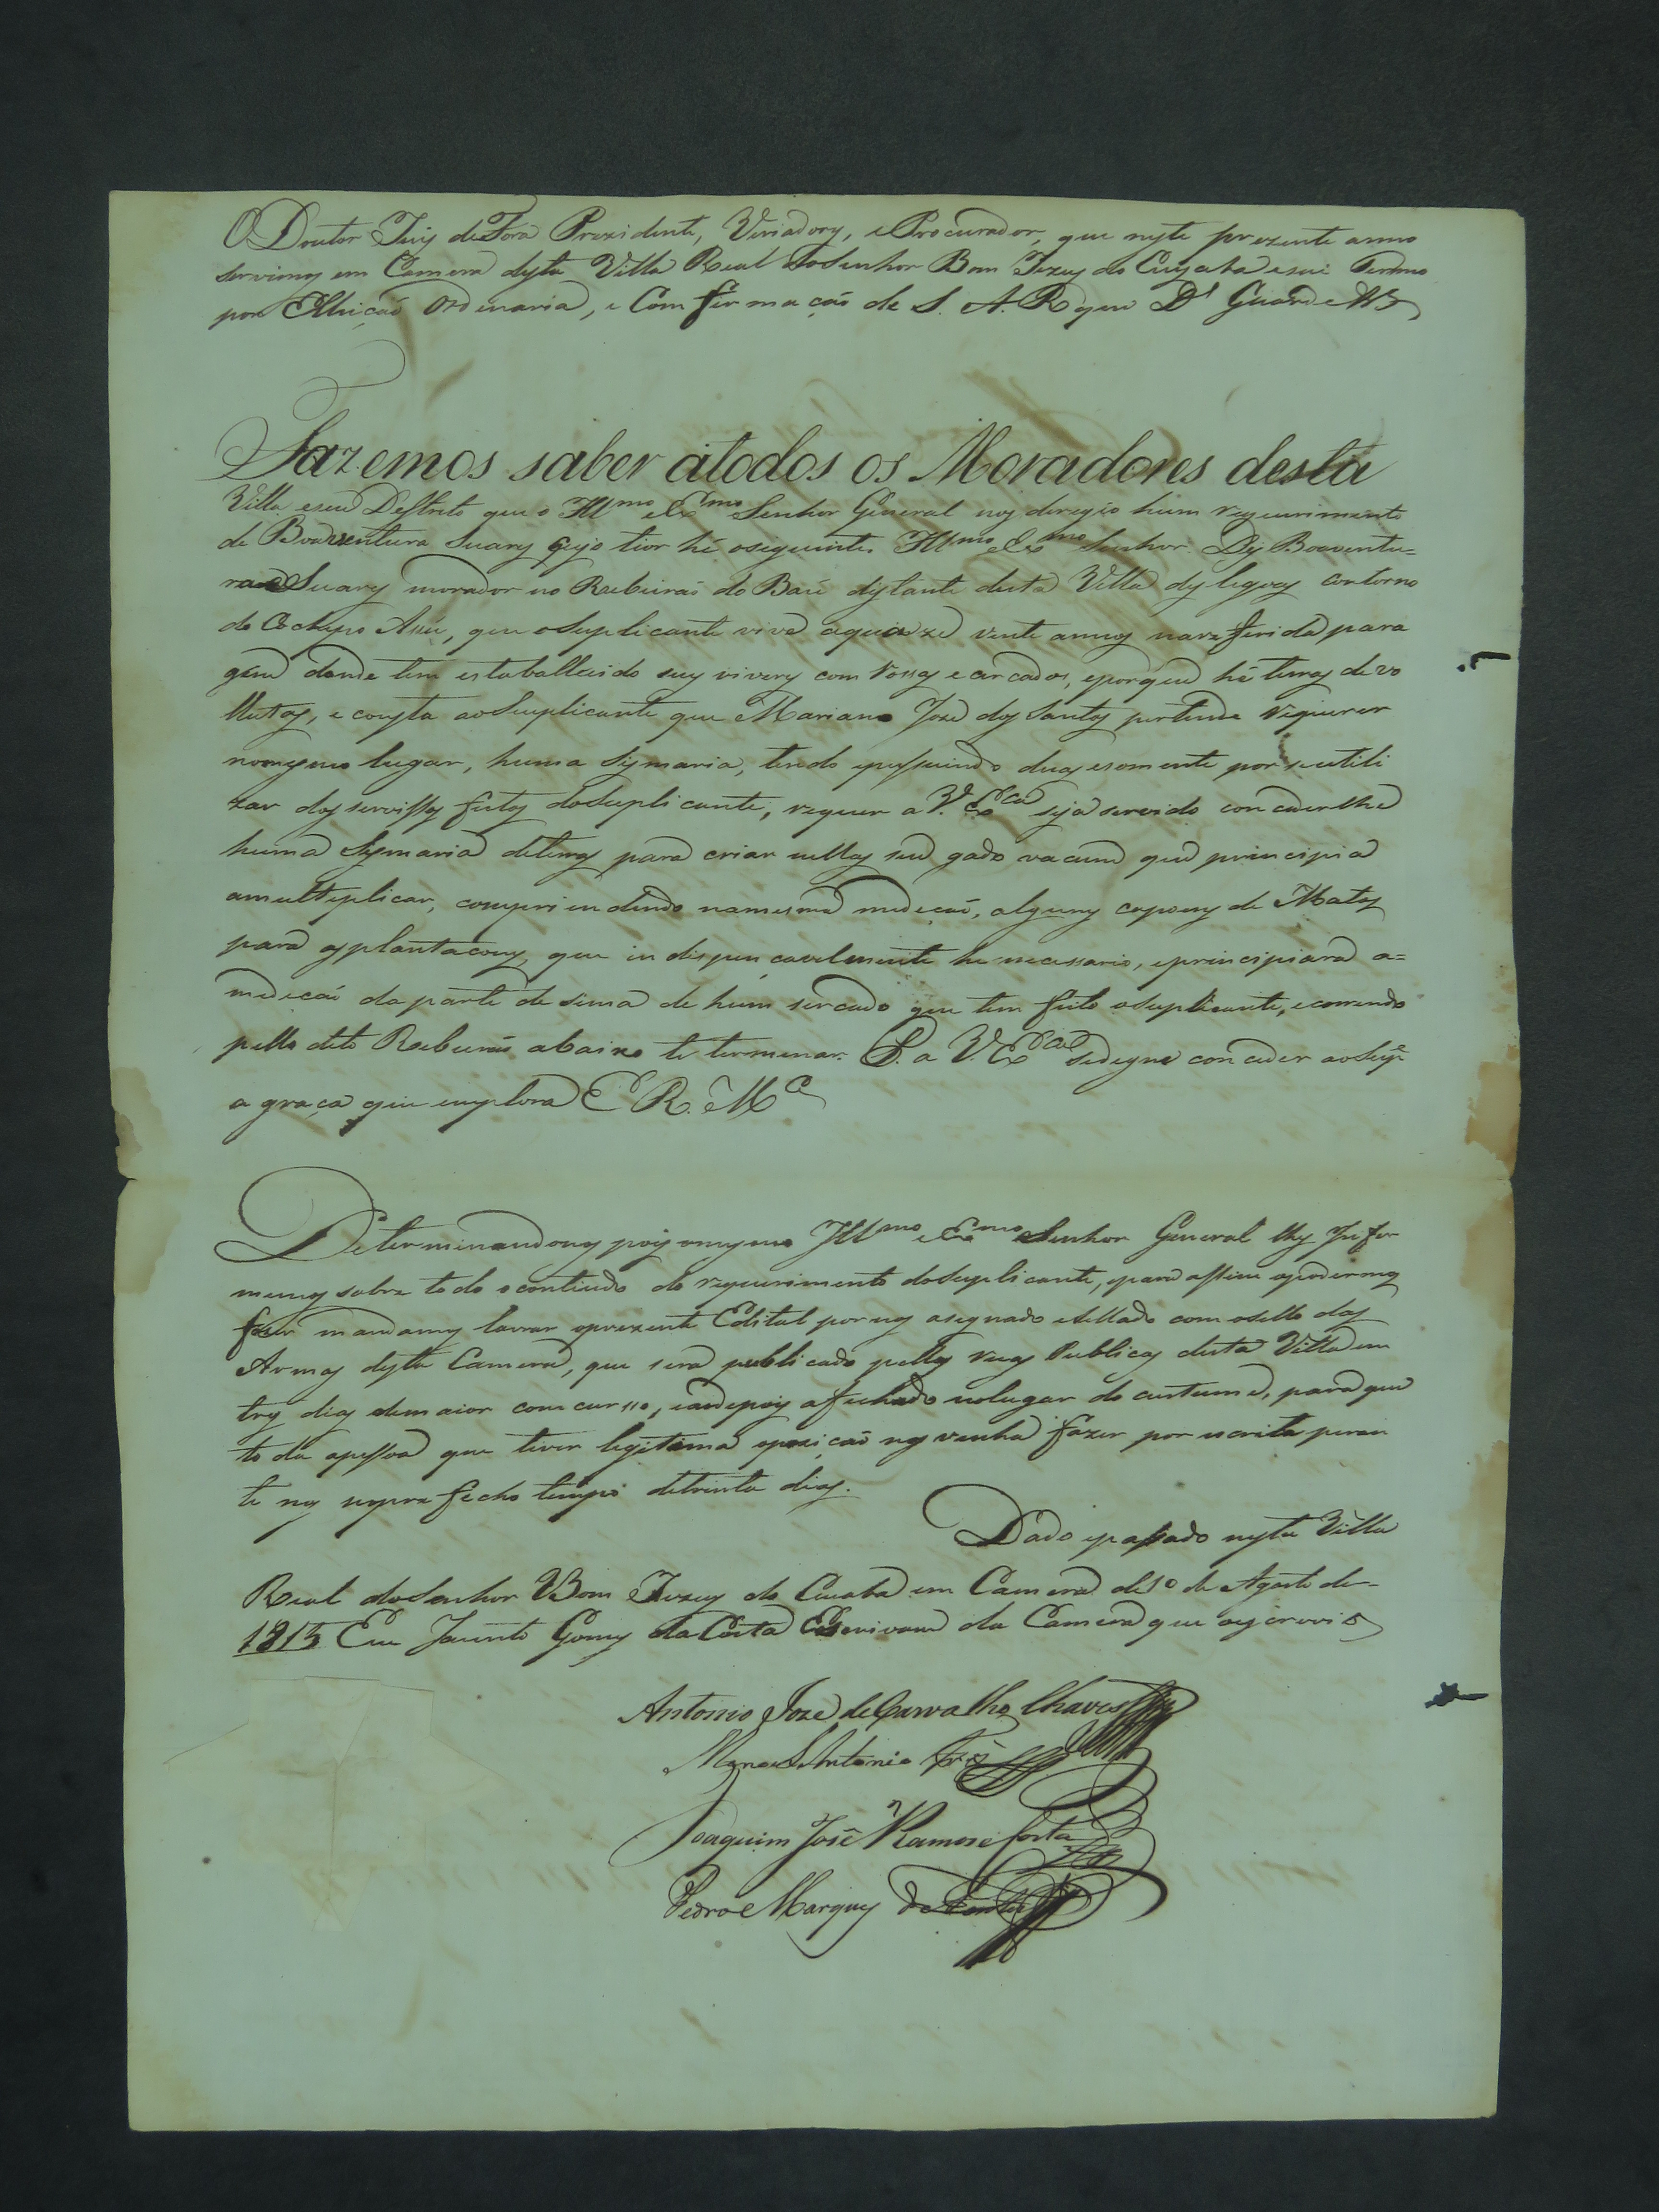 O Doutor Juiz deFora Prezidente, Veriadores, eProcurador, que neste prezente anno
servimos em Camera desta Villa Real doSenhor Bom Jezus do Cuyaba eseu Termo
por Elleiçaõ Ordenaria, e Comfirmaçaõ de S. A. R que Ds Guarde
Fazemos saber átodos os Moradores desta
Villa eseu Destrito que o Illmo eExmo Senhor General nos deregio hum requerimento
de Boaventura Suares cujo tior hé oseguinte. Illmo eExmo Senhor. Diz Boaventu=
ra Suares morador no Rebeiraõ do Baú distante desta Villa des legoas contorno
do Cochipo Assú, que oSuplicante vive aquaze vente annos nareferida para
gem donde tem estabellecido seus viveres com rossas e cercados, eporque hé terras devo
llutas, e consta aoSuplicante que Mariano Joze dos Santos pertende requerer
nomesmo lugar, huma Sismaria, tendo epessuindo duas esomente por seutili
zar dos servissos feitos doSuplicante, requer a V. Exca seja servido concederlhe
huma Sismaria deterras para criar nellas seu gado vacum que principia
amulteplicar, compriendendo namesma medeçaõ, alguns capoens de Matos
para asplantaçoens, que indispençavelmente he necessario, eprincipiará a=
medeçaõ da parte de sima de hum sercado que tem feito oSuplicante, ecorrendo
pello dito Rebeiraõ abaixo té termenar. P. a V. Exca sedegne conceder aoSupe
a graça que emplora E R. Mce
Determinandonos pois omesmo Illmo eExmo Senhor General lhe Infor
memos sobre todo ocontiudo do requerimento doSuplicante, epara assim opodermos
fazer mandamos lavrar oprezente Edital pornos asegnado esellado com osello das
Armas desta Camera, que será publicado pellas ruas Publicas desta Villa em
tres dias demaior comcursso, eaodepois afechado nolugar do custume, para que
toda apessoa que tiver legitima opoziçaõ nos venha fazer por escrito peran
te nos noprefecho tempo detrinta dias.
Dado epassado nesta Villa
Real doSenhor Bom Jezus do Cuiaba em Camera de 10 de Agosto de-
1815 Eu Jacinto Gomes daCosta Escrivam da Camera que oescrevi
Antonio Joze deCarvalho Chaves
Manoel Antonio
Joaquim José Ramos e Costa
Pedro Marques